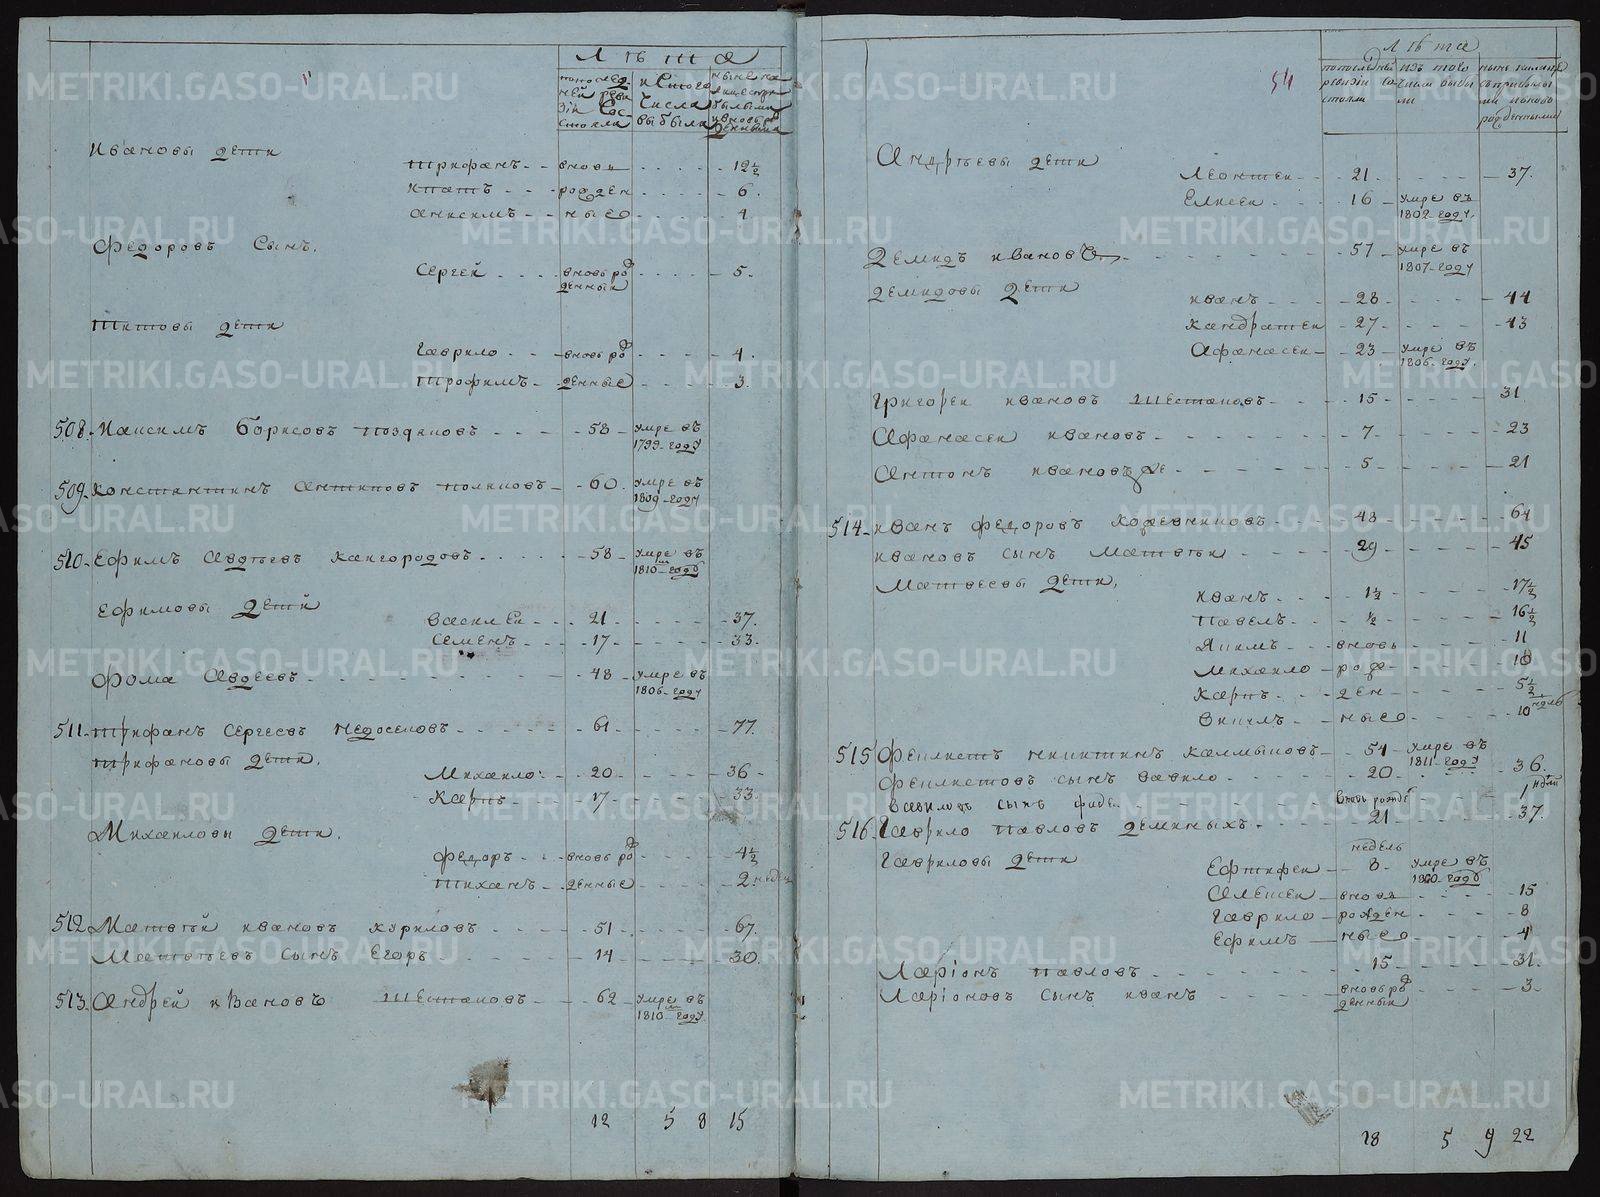 Лѣта
по последней ревизіи состояло
исъ того числа выбыло
ныне на лицо с прибылыми и вновь рожденными
Ивановы дети
Трифанъ - - вновь - - - - 12 ½
Ипатъ - - - рожден - - - - 6.
Анисимъ - - ныео - - - - 1
Федоровъ Сынъ.
Сергей - - - - вновь ро - - - - 5.
жденный
Титовы дети
Гаврило - - - вновь ро - - - - 4.
Трофимъ - жденные - - - - 3.
508. Максимъ Борисовъ Поздяновъ - - - - 58 - умре въ
1799 году
509. Константинъ Антиповъ Полиповъ - - 60. умре въ
1809 году
510. Ефимъ Авдѣевъ Кайгородовъ - - - - 58 - умре въ
1810 м годѣ
Ефимовы дети
Василей - - - 21 - - - - 37.
Семенъ - - - 17 - - - - 33.
Фома Авдеевъ - - - - 48 - умре въ
1806 году
511. Трифанъ Сергеевъ Недосековъ - - - - 61 - - - - 77.
Трифановы дети.
Михаило: - - 20 - - - - 36 -
Карпъ - - - 17 - - - - 33.
Михаиловы дети.
Федоръ - - - вновь ро - - - - 4 ½
Тиханъ - - жденные - - - - 2. недел
512. Матвѣй Ивановъ Куриловъ - - - - 51 - - - - 67.
Матвѣевъ Сынъ Егоръ - - - - 14 - - - - 30.
513. Андрей Ивановъ Шестаковъ - - - 62 - умре въ
1810 м году.
12 5 8 15
54
Лѣта
по последней ревизіи состояли
изъ того числа выбыли
ныне налице съ прибылыми и вново рожденными
Андрѣевы дети
Леонтеи - - 21 - - - - 37.
Елисеи - - - 16 - умре въ
1802 году.
Демидъ Ивановъ - - - - 57 - умре въ
1807 году
Демидовы дети
Иванъ - - - 28 - - - - 44
Кандратеи - 27 - - - - 43
Афанасеи - 23 - умре въ
1806 году.
Григореи Ивановъ Шестаковъ - - - 15 - - - - 31
Афанасеи Ивановъ - - - - 7 - - - - 23
Антонъ Ивановъ же - - - - 5 - - - - 21
514. Иванъ Федоровъ Кожевниковъ - - - - 48 - - - - 64
Ивановъ сынъ Матвѣи - - - - 29 - - - - 45
Матвеевы дети.
Иванъ - - - 1 ½ - - - - 17 ½
Павелъ - - - ½ - - - - 16 ½
Якимъ - - вновь - - - - 11
Михаило - рож - - - - 10
Карпъ - - ден - - - - 5 ½
Викулъ - - ныео - - - - 10 нѣль
515 Феиликстъ Никитинъ Калмыковъ - - 51 - умре въ
1811 году
Феиликстовъ сынъ Вавило - - - - 20 - - - - 36.
Вавиловъ сынъ Фиде - - - - вновь рожде - - - - 1 нѣдли
516. Гаврило Павловъ Деминыхъ - - - - 21 - - - - 37.
недель
Гавриловы дети Ефтифеи - 8 - умре въ
1800 годѣ
Алексеи - вновь - - - - 15
Гаврило - рожден - - - - 8
Ефимъ - ныео - - - - 4
Ларіонъ Павловъ - - - - 15 - - - - 31.
Ларіоновъ сынъ Иванъ - - - - вновь ро - - - - 3.
жденныи
18 5 9 22
METRIKI.GASO-URAL.RU